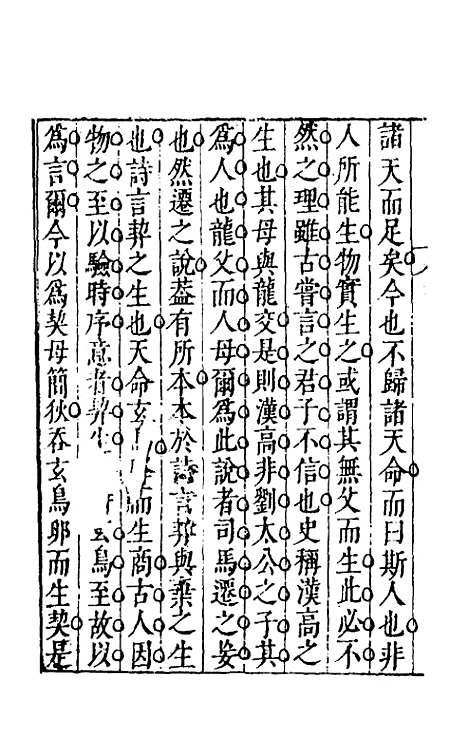 諸天而足矣今也不歸諸天命而曰斯人也非
人所能生物實生之或謂其無父而生此必不
然之理雖古嘗言之君子不信也史稱漢高之
生也其母與龍交是則漢高非劉太公之子其
爲人也龍父而人母爾爲此說者司馬遷之妄
也然遷之說葢有所本本於詩言契與棄之生
也詩言契之生也天命玄鳥降而生商古人因
物之至以驗時序意者契生玄鳥至故以
爲言爾今以爲契母簡狄呑玄鳥卵而生契是